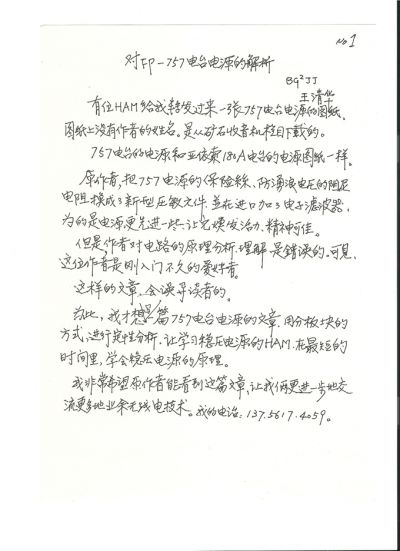 No 1
对FP-757电台电源的解析
BG2JJ
王清华
有位HAM给我转发过来一张757电台电源的图纸.
图纸上没有作者的姓名。是从矿石收音机栏目下载的。
757电台的电源和亚依索180A电台的电源图纸一样。
原作者,把757电源的保险丝、防浪涌电压的阻尼
电阻换成了新型压敏文件.并在进口加了电子滤波器.
为的是电源更先进一些让它焕发活力.精神可佳。
但是.作者对电路的原理分析.理解是错误的.可見.
这位作者是刚入门不久的爱好者。
这样的文章,会误导读者的。
为此,我才想写篇757电台电源的文章.用分板块的
方式,进行定性分析.让学习稳压电源的HAM.在最短的
时间里,学会稳压电源的原理。
我非常希望原作者能看到这篇文章,让我俩更进一步地交
流更多地业余无线电技术。我的电话:137.5617.4059。